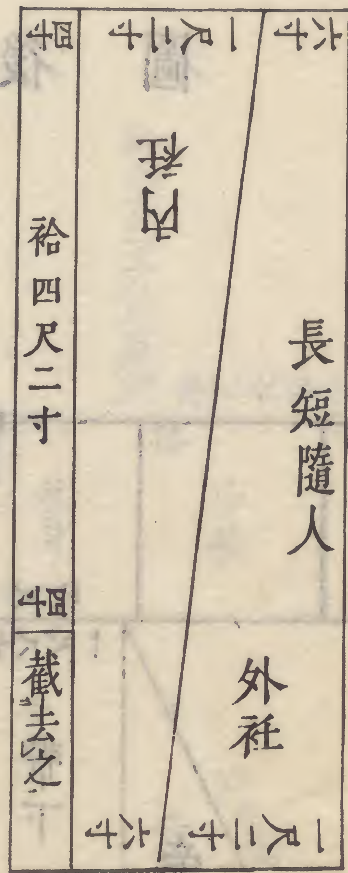 六寸
長短隨人
一尺二寸
外衽
一尺二寸
內衽
六寸
四寸
袷四尺二寸
四寸
截去之